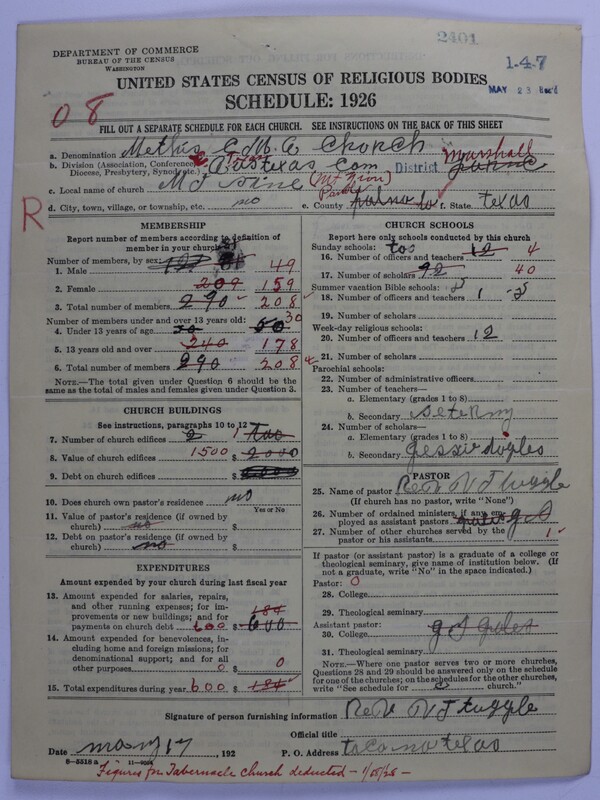 2401
1.47
MAY 23 Rec'd
DEPARTMENT OF COMMERCE
BUREAU OF THE CENSUS
WASHINGTON
UNITED STATES CENSUS OF RELIGIOUS BODIES
SCHEDULE: 1926
08
FILL OUT A SEPARATE SCHEDULE FOR EACH CHURCH. SEE INSTRUCTIONS ON THE BACK OF THIS SHEET
a. Denomination C M E Church
b. Division (Association, Conference, Diocese, Presbytery, Synod, etc.) texas Con District Marshall
c. Local name of church Mt (Mt Zion)
R
d. City, town, village, or township, etc. no e. County Panola f. State texas
MEMBERSHIP
Report number of members according to definition of member in your church
Number of members, by sex:
1. Male 49
2. Female 209 159
3. Total number of members 290 208
Number of members under and over 13 years old:
4. Under 13 years of age 50 50 30
5. 13 years old and over 240 178
6. Total number of members 290 208
NOTE.—The total given under Question 6 should be the same as the total of males and females given under Question 3.
CHURCH BUILDINGS
See instructions, paragraphs 10 to 12
7. Number of church edifices 2 1 two
8. Value of church edifices 1500 $ 2000
9. Debt on church edifices $
10. Does church own pastor's residence? no
Yes or No
11. Value of pastor's residence (if owned by church) no $
12. Debt on pastor's residence (if owned by church) no $
EXPENDITURES
Amount expended by your church during last fiscal year
13. Amount expended for salaries, repairs, and other running expenses; for improvements or new buildings; and for payments on church debt 600 $ 600 184
14. Amount expended for benevolences, including home and foreign missions; for denominational support; and for all other purposes 0 $ 0
15. Total expenditures during year 600 $ 184
CHURCH SCHOOLS
Report here only schools conducted by this church
Sunday schools:
16. Number of officers and teachers 12 4
17. Number of scholars 92 40
Summer vacation Bible schools:
18. Number of officers and teachers 1
19. Number of scholars
Week-day religious schools:
20. Number of officers and teachers 12
21. Number of scholars
Parochial schools:
22. Number of administrative officers
23. Number of teachers—
a. Elementary (grades 1 to 8)
b. Secondary
24. Number of scholars—
a. Elementary (grades 1 to 8)
b. Secondary
PASTOR
25. Name of pastor Rev N J tuggle
(If church has no pastor, write "None")
26. Number of ordained ministers, if any, employed as assistant pastors
27. Number of other churches served by the pastor or his assistants 1
If pastor (or assistant pastor) is a graduate of a college or theological seminary, give name of institution below. (If not a graduate, write "No" in the space indicated.)
Pastor: 0
28. College
29. Theological seminary
Assistant pastor:
30. College
31. Theological seminary
NOTE.—Where one pastor serves two or more churches, Questions 28 and 29 should be answered only on the schedule for one of the churches; on the schedules for the other churches, write "See schedule for church."
Signature of person furnishing information Rev N J tuggle
Official title
Date may 17, 192 P. O. Address texas
8—5518 a 11—9024
Figures for Tabernacle Church deducted - 1/25/28 -